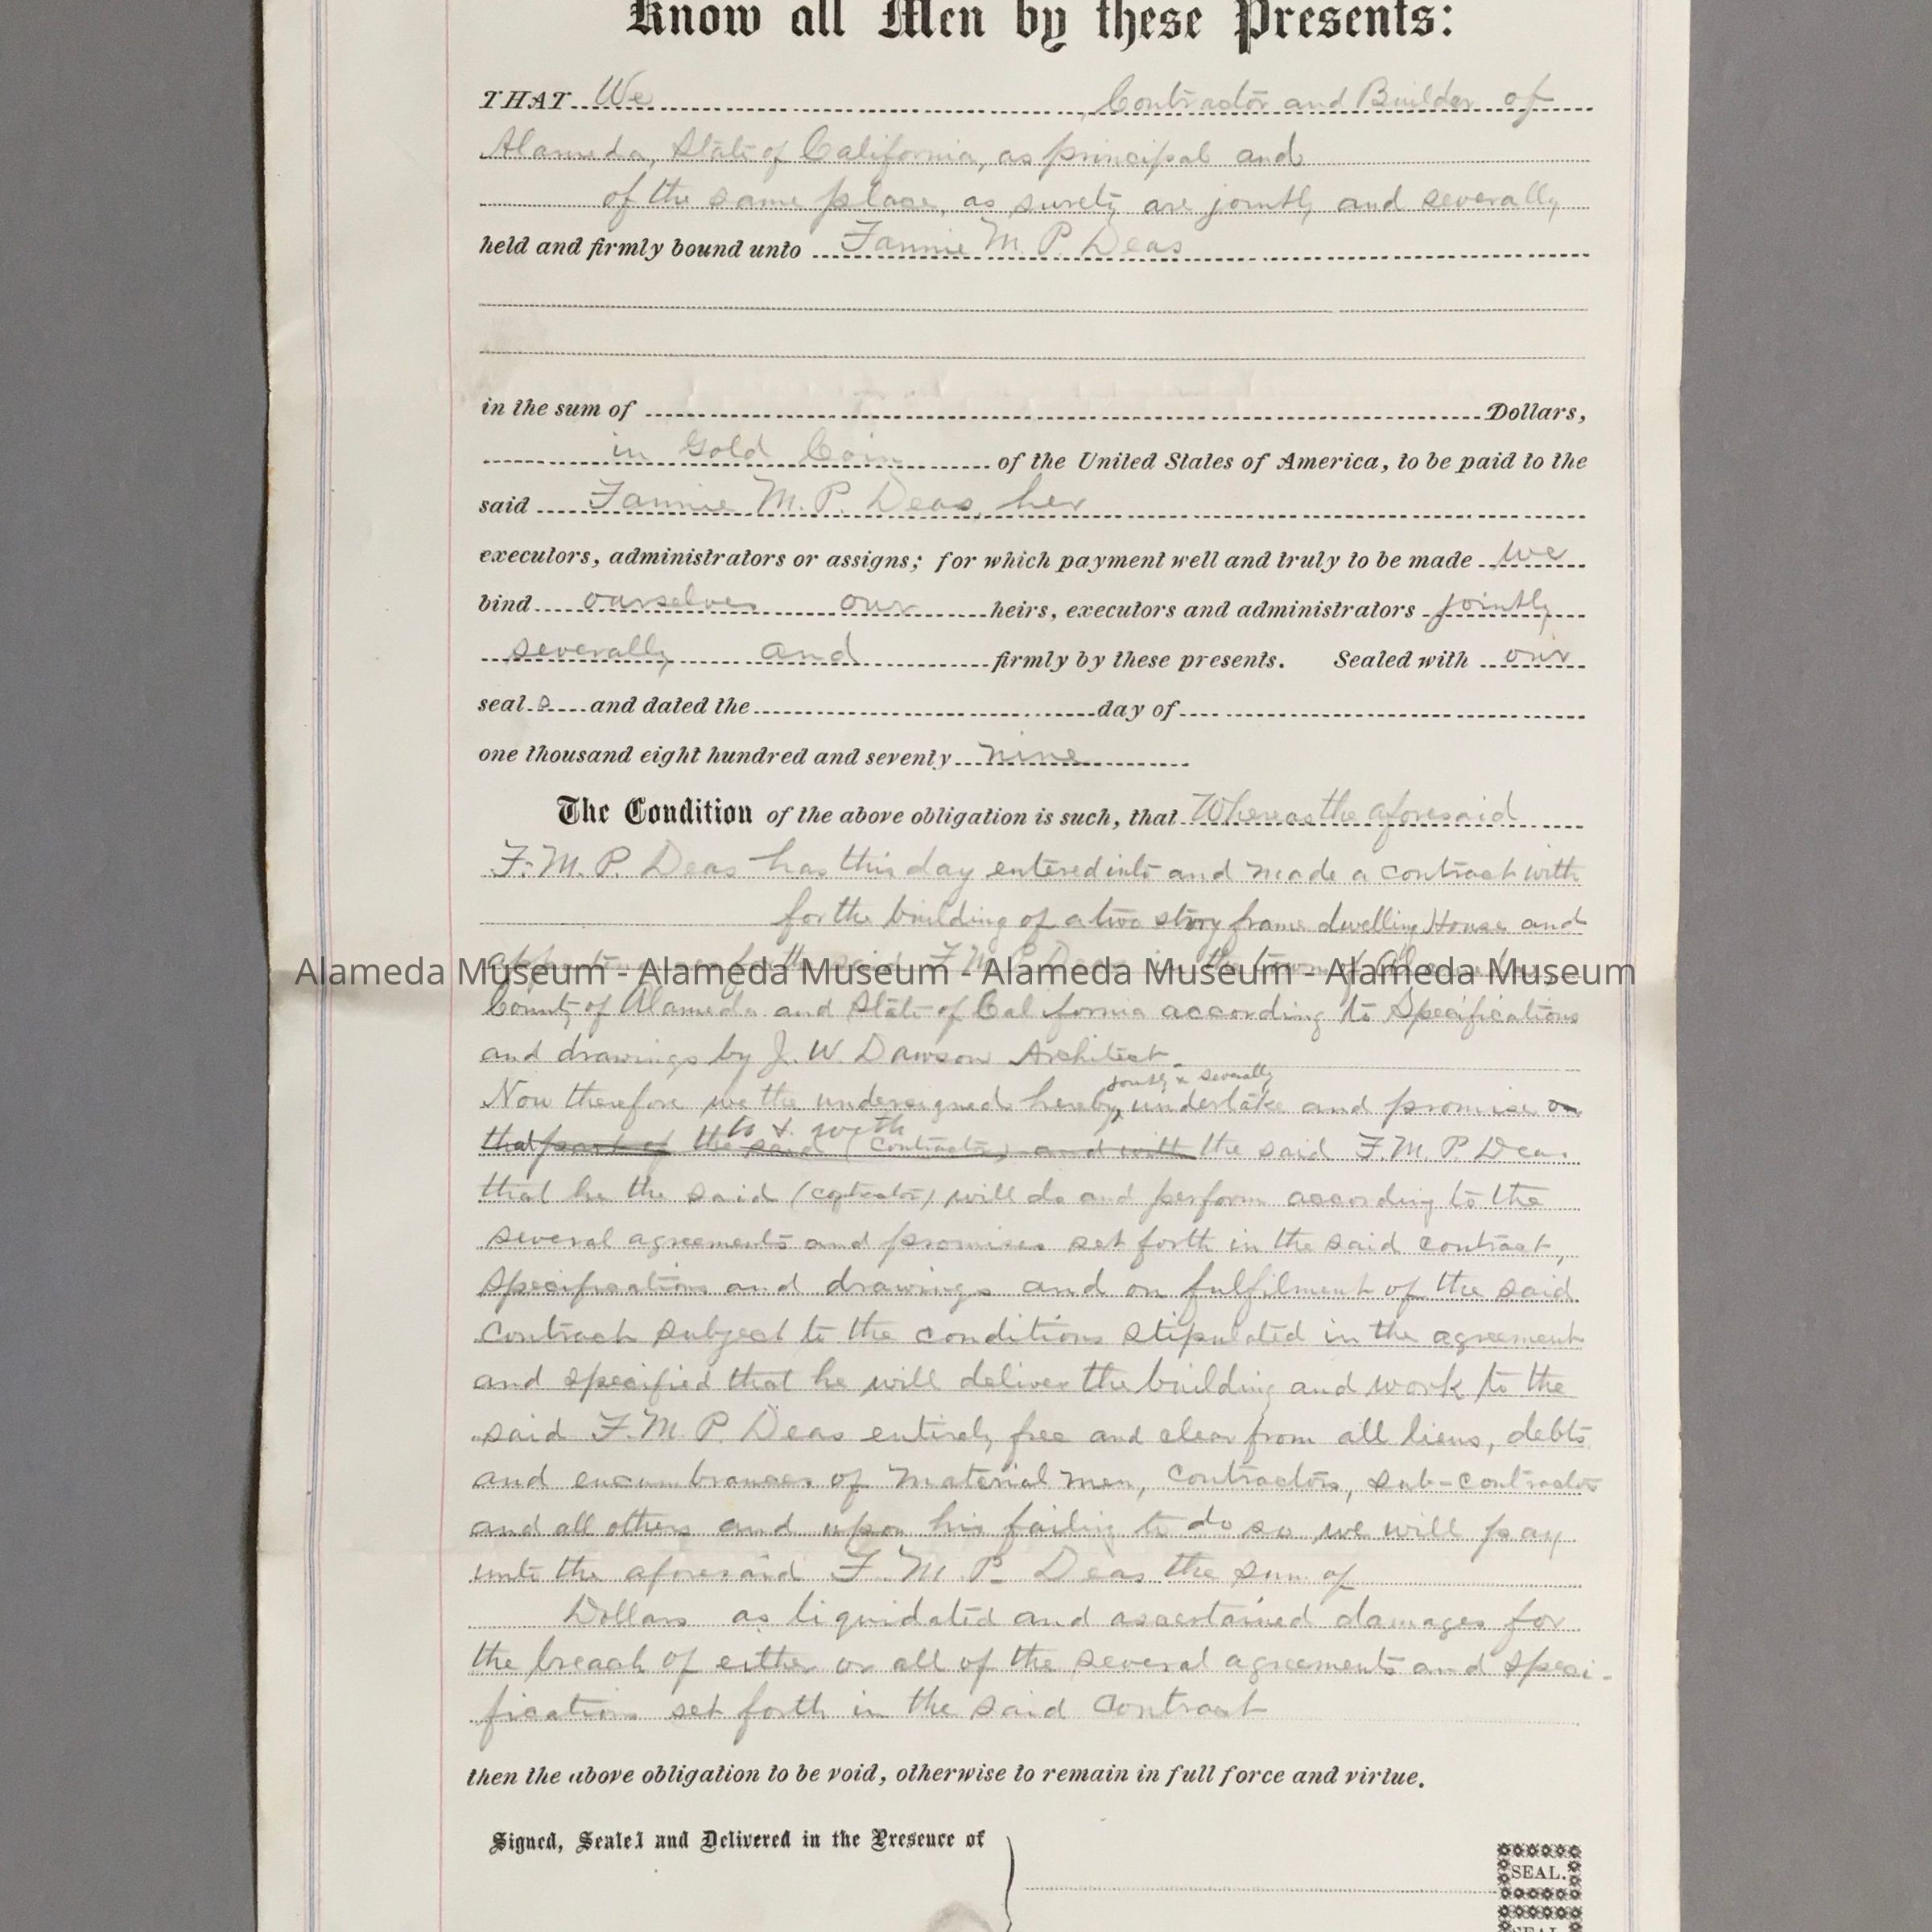 Know all Men by these Presents:
THAT We , Contractor and Builder of
Alameda, State of California, as principal and
of the same place, as surety are jointly and severally
held and firmly bound unto Fannie M. P. Deas
in the sum of Dollars,
in Gold Coin of the United States of America, to be paid to the
said Fannie M. P. Deas, her
executors, administrators or assigns; for which payment well and truly to be made we
bind ourselves our heirs, executors and administrators jointly
severally and firmly by these presents. Sealed with our
seal s and dated the day of
one thousand eight hundred and seventy nine
The Condition of the above obligation is such, that Whereas the aforesaid
F. M. P. Deas has this day entered into and made a contract with
for the building of a two story frame dwelling House and
for the said F. M. P. Deas in the town of Alameda,
Alameda Museum - Alameda Museum - Alameda Museum - Alameda Museum
County of Alameda and State of California according to Specifications
and drawings by J. W. Dawson Architect.
jointly & severally
Now therefore we the undersigned hereby undertake and promise on
to & with
that part of the said (contractor) and with the said F. M. P. Deas
that he the said (contractor) will do and perform according to the
several agreements and promises set forth in the said contract,
specifications and drawings and on fulfilment of the said
contract subject to the conditions stipulated in the agreement
and specified that he will deliver the building and work to the
said F. M. P. Deas entirely free and clear from all liens, debts
and encumbrances of material men, contractors, sub-contractors
and all others and upon his failing to do so we will pay
unto the aforesaid F. M. P. Deas the sum of
Dollars as liquidated and ascertained damages for
the breach of either or all of the several agreements and speci-
fications set forth in the said contract
then the above obligation to be void, otherwise to remain in full force and virtue.
Signed, Sealed and Delivered in the Presence of
SEAL.
SEAL